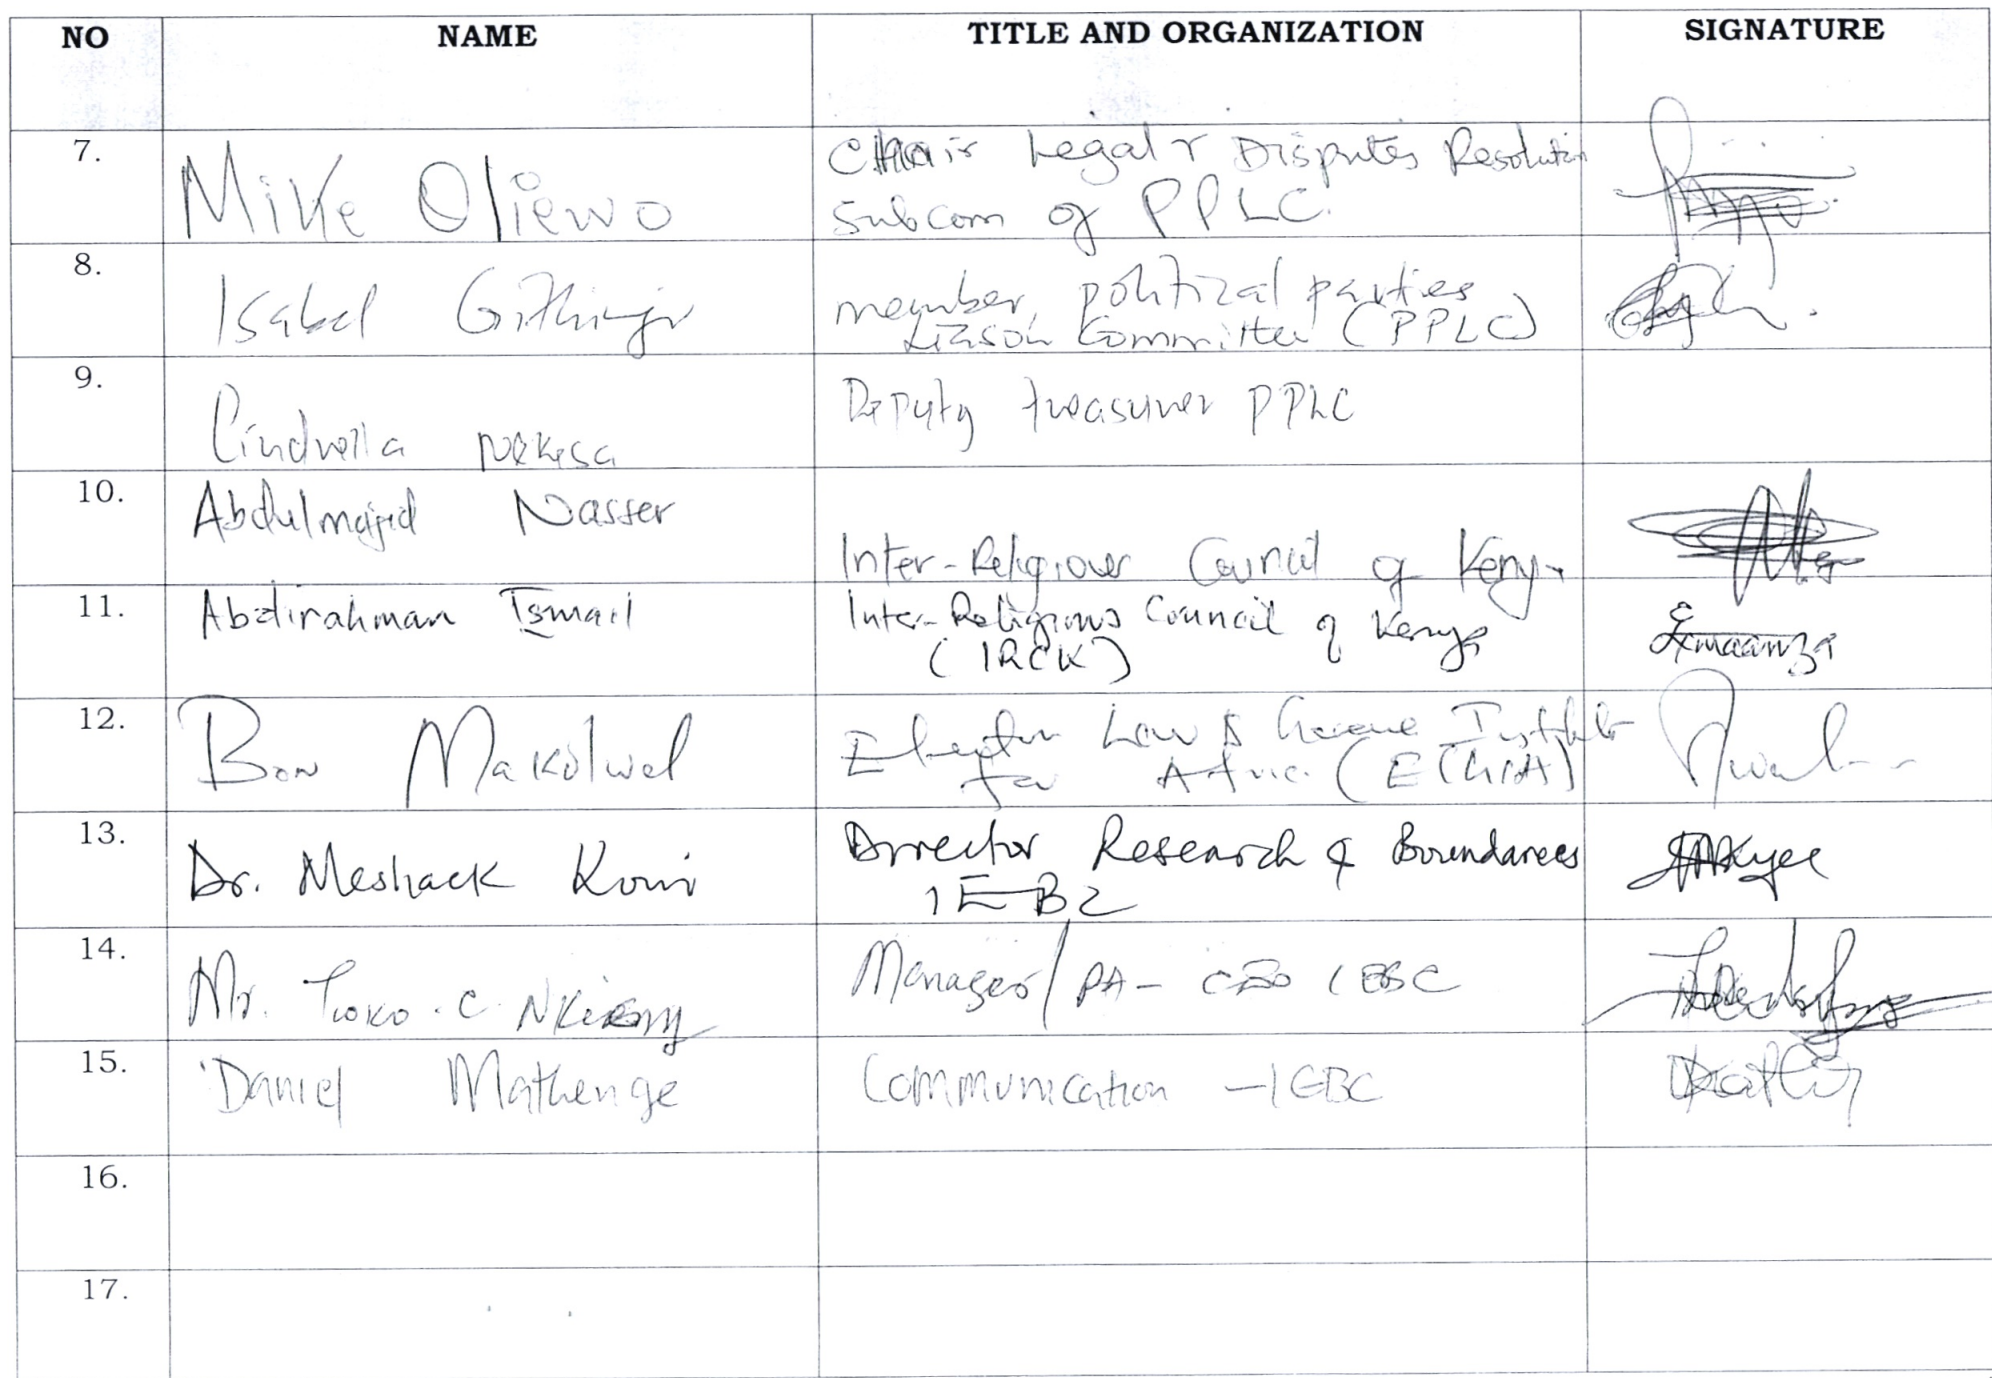 NO NAME TITLE AND ORGANIZATION SIGNATURE
7. Mike Oliewo Chair Legal & Disputes Resolution
Subcom of PPLC.
8. Isabel Githinji member, political parties
Liason Committee (PPLC)
9. Cindrella Nekesa Deputy treasurer PPLC
10. Abdulmajid Nasser Inter-Religious Council of Kenya
11. Abdirahman Ismail Inter-Religious Council of Kenya
(IRCK)
12. Bon Makolwal Law & Institute
for Africa
13. Dr. Meshack Director Research & Boundaries
IEBC
14. Mr. C. Manager/PA- CEO IEBC
15. Daniel Mathenge Communication - IEBC
16.
17.